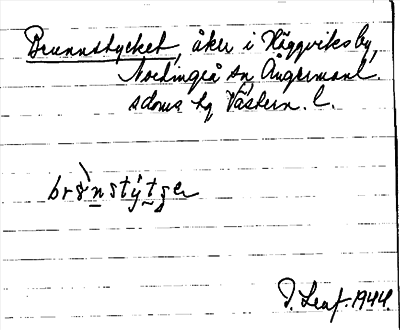 Brunnstycket, åker i Häggviks by,
Nordingrå sn Ångermanl.
sdoms hg Västern. l.
brʉ̀nstýtʂer
D. Leaf 1944.